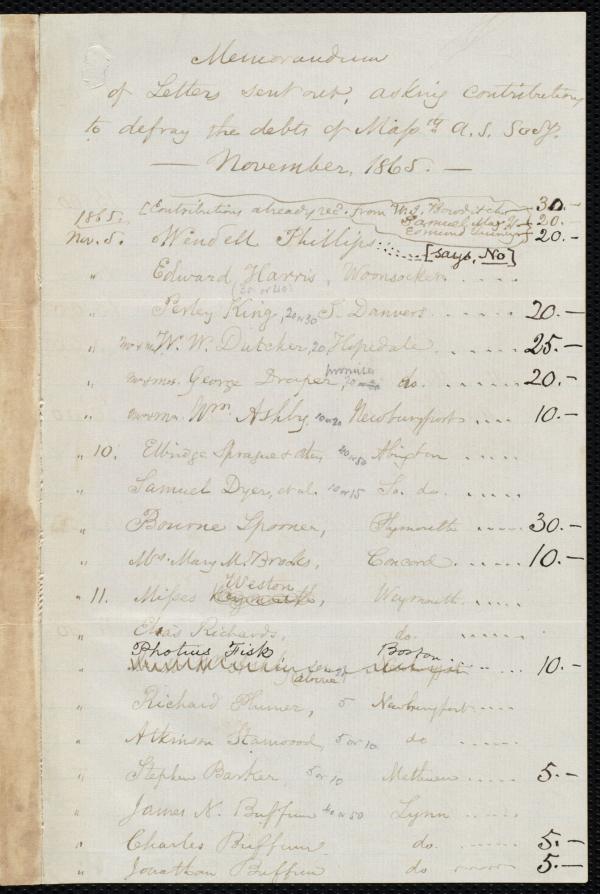 Memorandum
of Letters sent out, asking contributions
to defray the debts of Mass. A. S. Socy.
— November, 1865. —
[Contributions already recd. from Wm. I. Bowditch 30.—
Samuel May Jr. 20.—
Edmund Quincy 20.—
1865.
Nov. 8. Wendell Phillips ...... [says, No]
" Edward Harris, Woonsocket ....
(20 or 40)
" Perley King, 20 or 30 S. Danvers ...... 20.—
" Mr & Mrs W. W. Dutcher, 20 Hopedale ...... 25.—
" Mr & Mrs. George Draper, promises 20 do. ..... 20.—
" Mr & Mrs Wm. Ashby 10 or 20 Newburyport .... 10.—
" 10. Elbridge Sprague & Abington .....
" Samuel Dyer, et al. 10 or 15 So. do. .....
" Bourne Spooner, Plymouth ..... 30.—
" Mrs. Mary M. Brooks, Concord ..... 10.—
" 11. Misses Weston, Weymouth .....
" Elias Richards, do. ......
" Photius Fisk Boston ..... 10.—
(above)
" Richard Plumer, 5 Newburyport ....
" Atkinson Stanwood, 5 or 10 do ......
" Stephen Barker, 5 or 10 Methuen ..... 5.—
" James N. Buffum 40 or 50 Lynn .....
" Charles Buffum do. ...... 5.—
" Jonathan Buffum do ...... 5.—